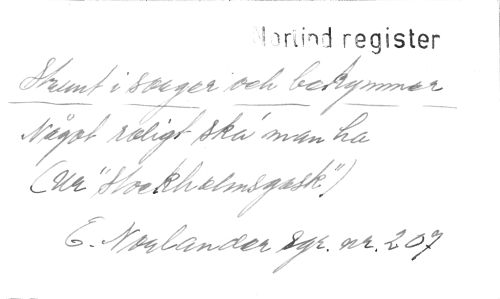 Norlind register
Strunt i sorger och bekymmer
Något roligt ska' man ha
(Ur "Stockholmsgask")
E. Norlander sgr. nr. 207